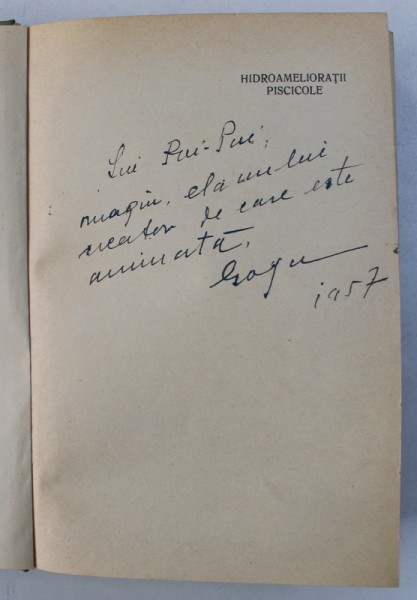 HIDROAMELIORAȚII
PISCICOLE
Lui Pui-Pui,
omagiu, elanului
creator de care este
animată,
Gogu
1957